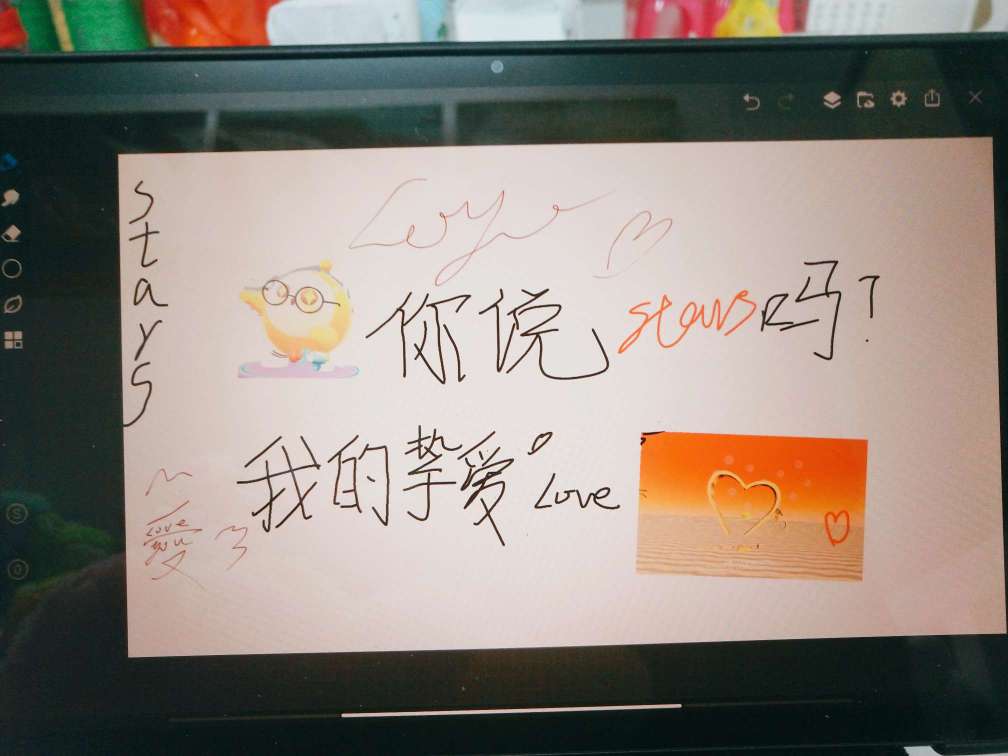 stars
你说stars吗?
我的挚爱 Love
Love
you